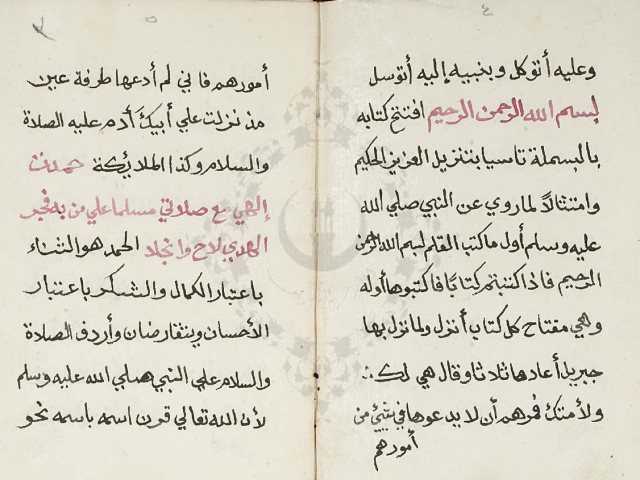 ٤
وعليه أتوكل وبنبيه إليه أتوسل
بسم الله الرحمن الرحيم افتتح كتابه
بالبسملة تاسيا بتنزيل العزيز الحكيم
وامتثالاً لما روي عن النبي صلي الله
عليه وسلم أول ما كتب القلم بسم الله الرحمن
الرحيم فاذا كتبتم كتابًا فاكتبوها أوله
وهي مفتاح كل كتاب أنزل ولما نزل بها
جبريل أعادها ثلاثا وقال هي لك
ولأمتك فمرهم أن لا يدعوها في شيئ من
أمورهم
٥
أمورهم فاني لم أدعها طرفة عين
مذ نزلت علي أبيك أدم عليه الصلاة
والسلام وكذا الملائكة حمدت
إلهي مع صلاتي مسلما علي من به فجر
الهدي لاح وانجلا الحمد هو الثناء
باعتبار الكمال والشكر باعتبار
الأحسان ويتقارضان وأردف الصلاة
والسلام علي النبي صلي الله عليه وسلم
لأن الله تعالي قرن اسمه باسمه نحو